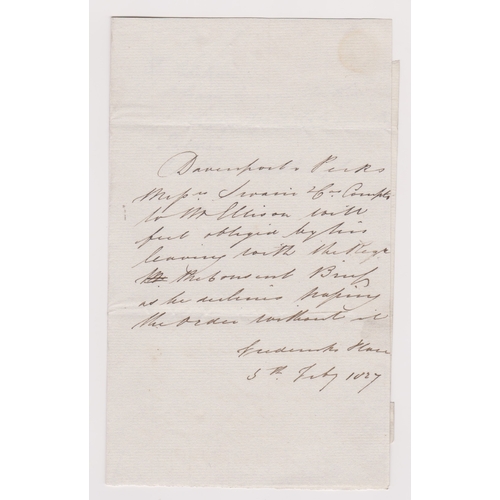 Davenport v Perks
Messrs Swain & Cos Compts
to Mr Ellison will
feel obliged by his
leaving with the Regr
the consent Brief
as he declines
the order without it
Fredericks Place
5th Feby 1827